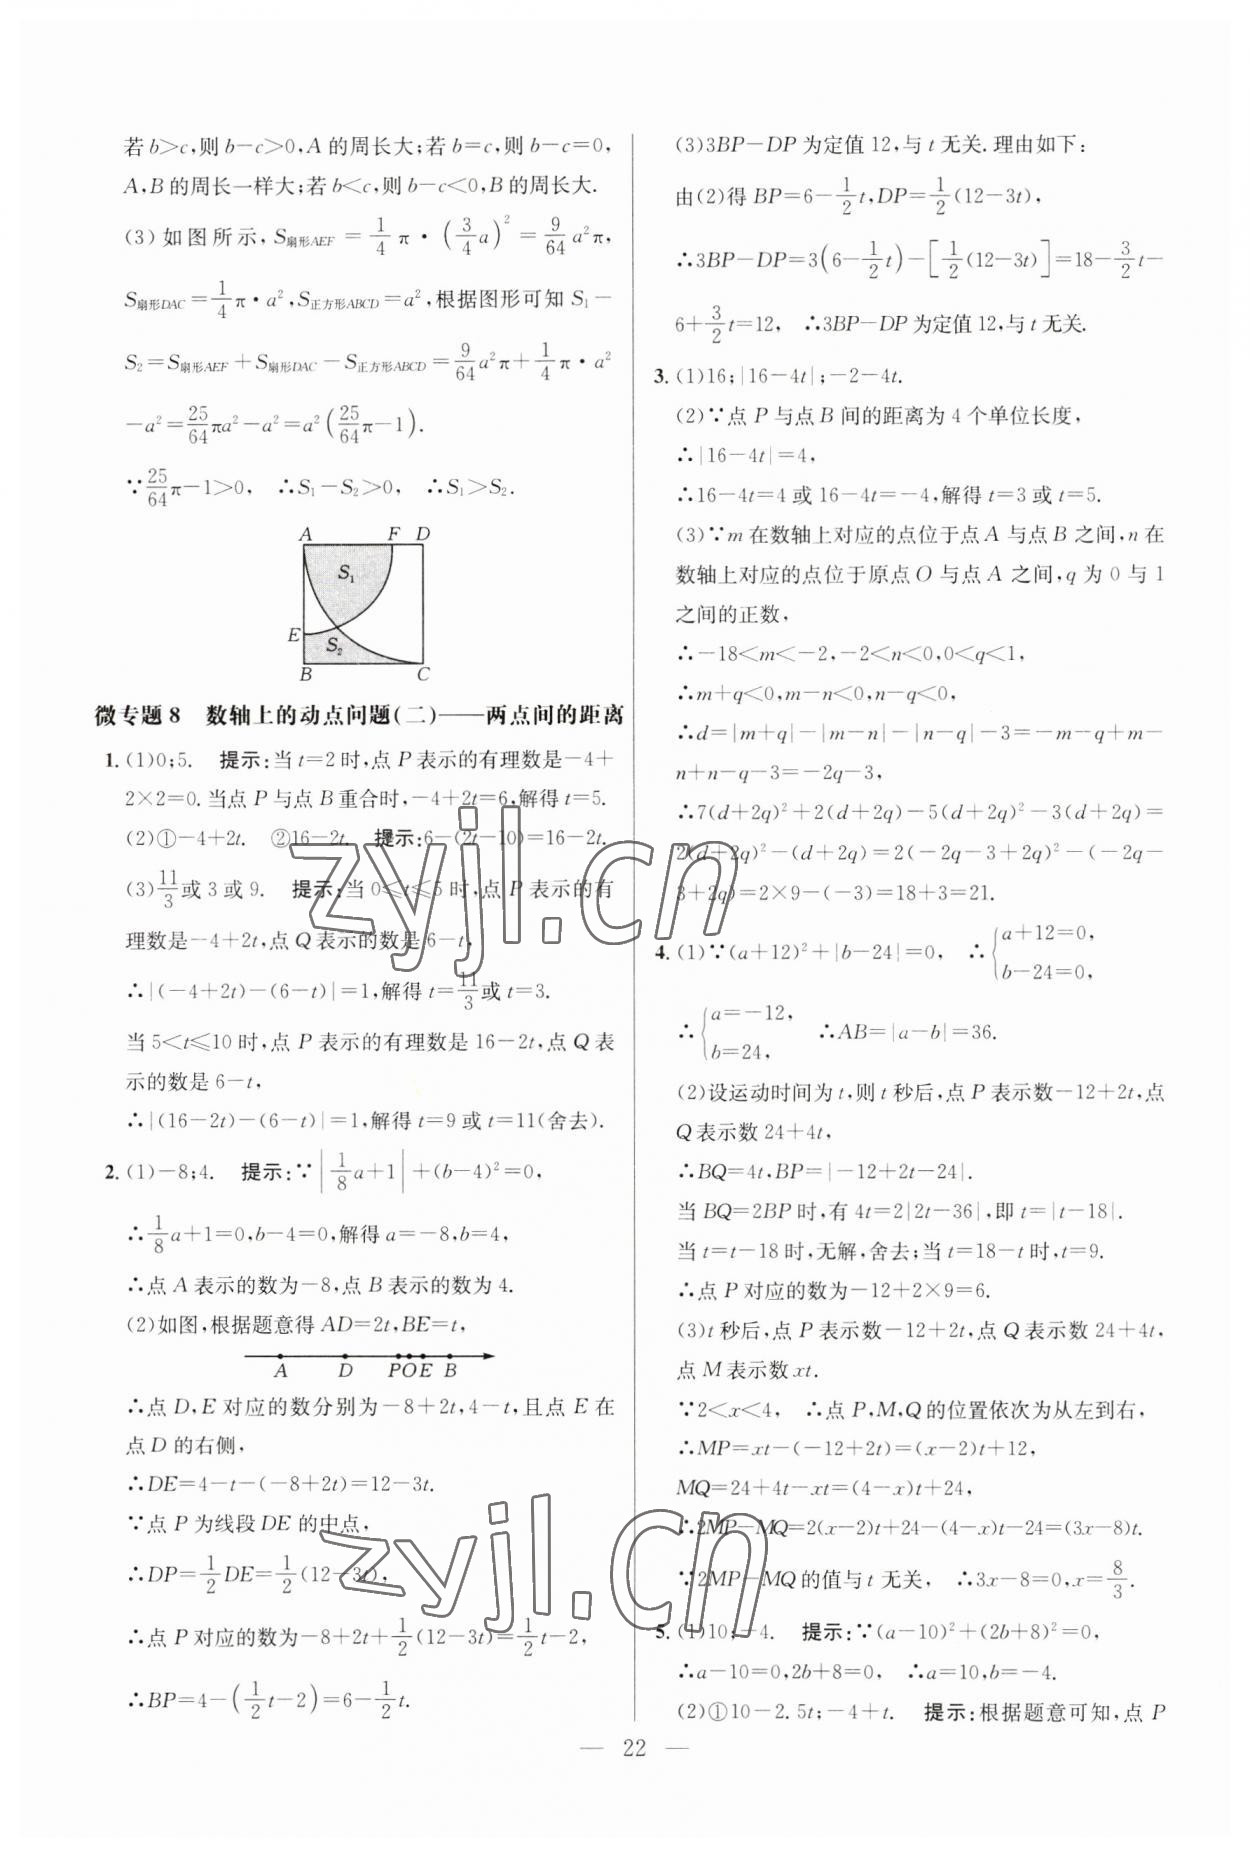 若b>c,则b-c>0,A的周长大;若b=c,则b-c=0,
A,B的周长一样大;若b<c,则b-c<0,B的周长大.
(3)如图所示,S扇形AEF=1/4π·(3/4a)²=9/64a²π,
S扇形DAC=1/4π·a²,S正方形ABCD=a²,根据图形可知S₁-
S₂=S扇形AEF+S扇形DAC-S正方形ABCD=9/64a²π+1/4π·a²
-a²=25/64πa²-a²=a²(25/64π-1).
∵25/64π-1>0, ∴S₁-S₂>0, ∴S₁>S₂.
A F D
S₁
E
S₂
B C
微专题8 数轴上的动点问题(二)——两点间的距离
1.(1)0;5. 提示:当t=2时,点P表示的有理数是-4+
2×2=0.当点P与点B重合时,-4+2t=6,解得t=5.
(2)①-4+2t. ②16-2t. 提示:6-(2t-10)=16-2t.
(3)11/3或3或9. 提示:当0≤t≤5时,点P表示的有
理数是-4+2t,点Q表示的数是6-t,
∴|(-4+2t)-(6-t)|=1,解得t=11/3或t=3.
当5<t≤10时,点P表示的有理数是16-2t,点Q表
示的数是6-t,
∴|(16-2t)-(6-t)|=1,解得t=9或t=11(舍去).
2.(1)-8;4. 提示:∵|1/8a+1|+(b-4)²=0,
∴1/8a+1=0,b-4=0,解得a=-8,b=4,
∴点A表示的数为-8,点B表示的数为4.
(2)如图,根据题意得AD=2t,BE=t,
A D P O E B
∴点D,E对应的数分别为-8+2t,4-t,且点E在
点D的右侧,
∴DE=4-t-(-8+2t)=12-3t.
∵点P为线段DE的中点,
∴DP=1/2DE=1/2(12-3t),
∴点P对应的数为-8+2t+1/2(12-3t)=1/2t-2,
∴BP=4-(1/2t-2)=6-1/2t.
(3)3BP-DP为定值12,与t无关.理由如下:
由(2)得BP=6-1/2t,DP=1/2(12-3t),
∴3BP-DP=3(6-1/2t)-[1/2(12-3t)]=18-3/2t-
6+3/2t=12, ∴3BP-DP为定值12,与t无关.
3.(1)16;|16-4t|;-2-4t.
(2)∵点P与点B间的距离为4个单位长度,
∴|16-4t|=4,
∴16-4t=4或16-4t=-4,解得t=3或t=5.
(3)∵m在数轴上对应的点位于点A与点B之间,n在
数轴上对应的点位于原点O与点A之间,q为0与1
之间的正数,
∴-18<m<-2,-2<n<0,0<q<1,
∴m+q<0,m-n<0,n-q<0,
∴d=|m+q|-|m-n|-|n-q|-3=-m-q+m-
n+n-q-3=-2q-3,
∴7(d+2q)²+2(d+2q)-5(d+2q)²-3(d+2q)=
2(d+2q)²-(d+2q)=2(-2q-3+2q)²-(-2q-
3+2q)=2×9-(-3)=18+3=21.
4.(1)∵(a+12)²+|b-24|=0, ∴{a+12=0,
b-24=0,
∴{a=-12,
b=24, ∴AB=|a-b|=36.
(2)设运动时间为t,则t秒后,点P表示数-12+2t,点
Q表示数24+4t,
∴BQ=4t,BP=|-12+2t-24|.
当BQ=2BP时,有4t=2|2t-36|,即t=|t-18|.
当t=t-18时,无解,舍去;当t=18-t时,t=9.
∴点P对应的数为-12+2×9=6.
(3)t秒后,点P表示数-12+2t,点Q表示数24+4t,
点M表示数xt.
∵2<x<4, ∴点P,M,Q的位置依次为从左到右,
∴MP=xt-(-12+2t)=(x-2)t+12,
MQ=24+4t-xt=(4-x)t+24,
∴2MP-MQ=2(x-2)t+24-(4-x)t-24=(3x-8)t.
∵2MP-MQ的值与t无关, ∴3x-8=0,x=8/3.
5.(1)10;-4. 提示:∵(a-10)²+(2b+8)²=0,
∴a-10=0,2b+8=0, ∴a=10,b=-4.
(2)①10-2.5t;-4+t. 提示:根据题意可知,点P
— 22 —
zyjl.cn
zyjl.cn